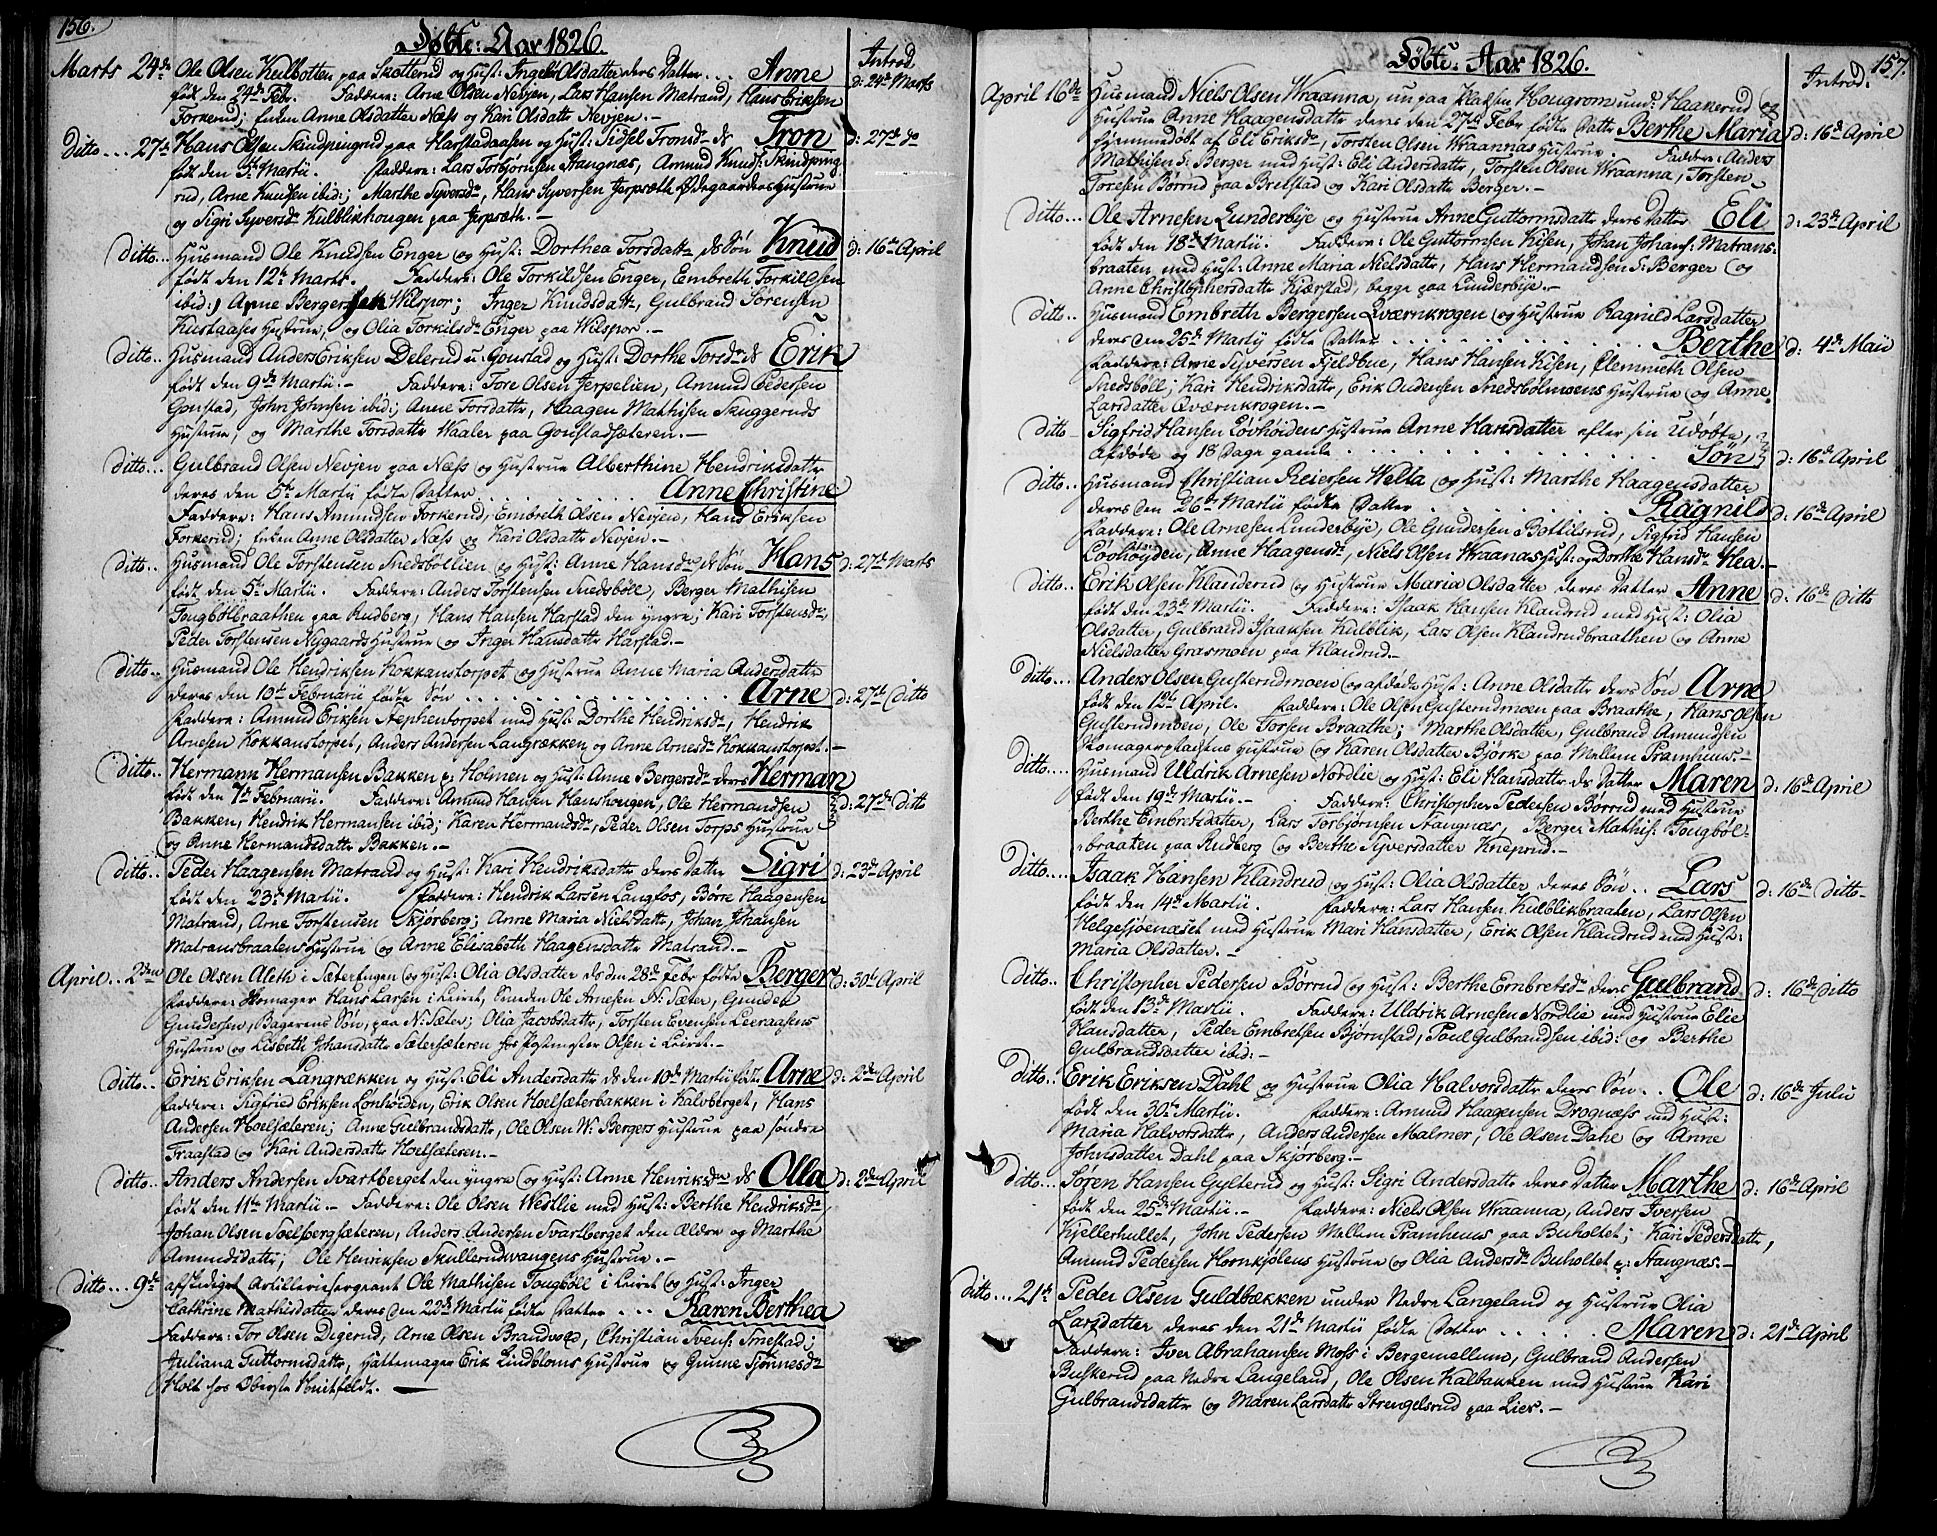 156.
Døbte: Aar 1826.
Introd.
Marts 24de Ole Olsen Kulbotten paa Skotterud og Hust: Ingeb: Olsdatter deres Datter... Anne d: 24de Marts
født den 24de Febr. Faddere: Arne Olsen Nevjen, Lars Hansen Matrand, Hans Eriksen
Torkerud; Enken Anne Olsdatter Næss og Kari Olsdatt Nevjen.-
ditto... 27de Hans Olsen Skindpingrud paa Harstadaasen og Hust: Sidsel Tronsdr ds Tron d: 27de do
født den 5te Martii. Faddere: Lars Torbjørnsen Stangnæs, Amund Knuds: Skindping
rud, Arne Knudsen ibid; Marthe Syversdr, Hans Syversen Jerpseth Ødegaardens Hustrue
og Sigri Syversdr Kulblikhougen paa Jerpseth.-
ditto... Husmand Ole Knudsen Enger og Hust: Dorthea Torsdattr ds Søn Knud d: 16de April
født den 12te Marts. Faddere: Ole Torkildsen Enger, Embreth Torkilsen
ibid:, Arne Bergersen Wilspor; Inger Knudsdattr, Gulbrand Sørensen
Kustaases Hustrue, og Olia Torkilsdr Enger paa Wilspor.-
ditto.. Husmand Anders Eriksen Delerud u. Gonstad og Hust: Dorthe Torsdr ds Erik
født den 9de Martii.- Faddere: Tore Olsen Jerpelien, Amund Pedersen
Gonstad, John Johnsen ibid; Anne Torsdattr, Haagen Mathisen Skuggeruds
Hustrue, og Marthe Torsdattr Waaler paa Gonstadsæteren.-
ditto... Gulbrand Olsen Nevjen paa Næss og Hustrue Alberthine Hendriksdattr
deres den 5te Martii fødte Datter.......... Anne Christine
Faddere: Hans Amundsen Torkerud, Embreth Olsen Nevjen, Hans Eriksen
Torkerud; Enken Anne Olsdatter Næss og Kari Olsdattr Nevjen.-
ditto.. Husmand Ole Torstensen Snedsbøllien og Hust: Anne Hansdr ds Søn Hans d: 27de Marts
født den 5te Martii. Faddere: Anders Torstensen Snedsbøll, Berger Mathisen
Tougbølbraathen paa Rudberg, Hans Hansen Harstad den yngre; Kari Torstensdr,
Peder Torstensen Nygaards Hustrue og Inger Hansdattr Harstad.-
ditto.. Husmand Ole Hendriksen Kokkanstorpet og Hustrue Anne Maria Andersdattr
deres den 19de Februarii fødte Søn.......... Arne d: 27de Ditto
Faddere: Amund Eriksen Stephentorpet med Hust: Dorthe Hendriksdr, Hendrik
Arnesen Kokkanstorpet, Anders Andersen Langrækken og Anne Arnesdr Kokkanstorpet.-
ditto.. Hermann Hermansen Bakken p: Holmen og Hust: Anne Bergersdr deres Herman
født den 7de Februarii. Faddere: Amund Hansen Hanshougen, Ole Hermandsen d: 27de ditto
Bakken, Hendrik Hermansen ibid; Karen Hermandsdr, Peder Olsen Torps Hustrue
og Anne Hermandsdatter Bakken.-
ditto... Peder Haagensen Matrand og Hust: Kari Hendriksdatter deres Datter Sigri d: 23de April
født den 23de Martii. Faddere: Hendrik Larsen Langfos, Børre Haagensen
Matrand, Arne Torstensen Skjørberg; Anne Maria Nielsdattr, Johan Johansen
Matransbraatens Hustrue og Anne Elisabeth Haagensdattr Matrand.-
April.. 2den Ole Olsen Aleth i SæterEngen og Hust: Olia Olsdatter ds den 28de Febr fødte Berger d: 30te April
Faddere: Skomager Hans Larsen i Leiret, Smeden Ole Arnesen N: Sæter, Gunder
Gundersen, Bagerens Søn, paa N: Sæter; Olia Jacobsdattr, Torsten Evensen Leeraasens
Hustrue og Lisbeth Johansdattr Sætersæteren hos Postmester Olsen i Leiret.-
ditto.. Erik Eriksen Langrækken og Hust: Eli Andersdattr ds den 10de Martii født Arne d: 2den April
Faddere: Sigfried Eriksen Lonhøiden, Erik Olsen Hoelsæterbakken i Kalvberget, Hans
Andersen Hoelsæteren; Anne Gulbrandsdattr, Ole Olsen W: Bergers Hustrue paa søndre
Traastad og Kari Andersdattr Hoelsæteren.-
ditto.. Anders Andersen Svartberget den yngre og Hust: Anne Henriksdr ds Olla d: 2den April
født den 11te Martii.- Faddere: Ole Olsen Westlie med Hust: Berthe Hendriksdr
Johan Olsen Soelbergsæteren, Anders Andersen Svartberget den Ældre og Marthe
Amundsdattr; Ole Henriksen Skullerudwangens Hustrue.-
ditto... 9de afskediget Artilleriesergeant Ole Mathisen Tougbøll i Leiret og Hust: Inger
Cathrine Mathisdatter deres den 22de Martii fødte Datter.... Karen Berthea
Faddere: Tor Olsen Digerud, Arne Olsen Brandvold, Christian Svens: Smestad;
Juliana Guttormsdattr, Hattemager Erik Lindbloms Hustrue og Gunne Tjønnesdr
Holt hos Oberste Huitfeldt.-
157.
Døbte: Aar 1826.
Introd.
April 16de Husmand Niels Olsen Wraanna, nu paa Pladsen Hougrom und: Haakerud og
Hustrue Anne Haagensdattr deres den 27de Febr fødte Dattr Berthe Maria d: 16de April
hjemmedøbt af Eli Eriksdr, Torsten Olsen Wraannas Hustrue. Faddere: Anders
Mathisen S: Berger med Hust: Eli Andersdattr, Torsten Olsen Wraanna, Torsten
Toresen Børrud paa Breistad og Kari Olsdattr Berger.-
ditto... Ole Arnesen Lunderbye og Hustrue Anne Guttormsdattr deres Datter Eli d: 23de April
født den 18de Martii. Faddere: Ole Guttormsen Kisen, Johan Johans: Matrans-
braaten med Hust: Anne Maria Nielsdattr, Hans Hermandsen S: Berger og
Anne Christophersdattr Kjærstad, begge paa Lunderbye.-
ditto.. Husmand Embreth Bergersen Qværnkrogen og Hustrue Ragnild Larsdatter
deres den 25de Martii fødte Datter.......... Berthe d: 4de Maii
Faddere: Arne Syversen Fjeldbue, Hans Hansen Kisen, Clemmeth Olsen
Snedsbøll; Kari Hendriksdattr, Erik Andersen Snedsbølmoens Hustrue og Anne
Larsdatter Qværnkrogen.-
ditto- Sigfrid Hansen Løvhøidens Hustrue Anne Hansdatter efter sin Udøbte,
afdøde og 18 Dage gamle.......... Søn d: 16de April
ditto.. Husmand Christian Reiersen Welta og Hust: Marthe Haagensdatter
deres den 26de Martii fødte Datter.......... Ragnild d: 16de April
Faddere: Ole Arnesen Lunderbye, Ole Gundersen Bottilsrud, Sigfrid Hansen
Løvhøyden, Anne Haagensdr, Niels Olsen Wraanas Hust: og Dorthe Hansdr Hea.-
ditto... Erik Olsen Klanderud og Hustrue Maria Olsdatter deres Datter Anne d: 16de Ditto
født den 23de Martii. Faddere: Isaak Hansen Klandrud med Hust: Olia
Olsdatter, Gulbrand Isaaksen Kulblik, Lars Olsen Klandrudbraathen og Anne
Nielsdatter Grasmoen paa Klandrud.-
ditto... Anders Olsen Gusterudmoen og afdøde Hust: Anne Olsdattr deres Søn Arne
født den 12te April. Faddere: Ole Olsen Gusterudmoen paa Braathe, Hans Olsen
Gusterudmoen, Ole Torsen Braathe; Marthe Olsdatter, Gulbrand Amundsen
Skomagerpladsens Hustrue og Karen Olsdatter Bjørke paa Mellem Pramhuus.-
ditto.... Husmand Uldrik Arnesen Nordlie og Hust: Eli Hansdattr ds Datter Maren d: 16de April
født den 19de Martii.- Faddere: Christopher Pedersen Børrud med Hustrue
Berthe Embretsdatter, Lars Torbjørnsen Stangnæs, Berger Mathis: Tougbøl-
braaten paa Rudberg og Berthe Syversdatter Kneprud.-
ditto.... Isaak Hansen Klandrud og Hust: Olia Olsdatter deres Søn.. Lars d: 16de Ditto
født den 14de Martii. Faddere: Lars Hansen Kulblikbraaten, Lars Olsen
Helgesjøenæset med Hustrue Mari Hansdatter, Erik Olsen Klandrud med Hust:
Maria Olsdatter.-
ditto.. Christopher Pedersen Børrud og Hust: Berthe Embretsdr deres Gulbrand d: 16de Ditto
født den 13de Martii. Faddere: Uldrik Arnesen Nordlie med Hustrue Elie
Hansdatter, Peder Embretsen Bjørnstad, Poul Gulbrandsen ibid: og Berthe
Gulbrandsdatter ibid:-
ditto.. Erik Eriksen Dahl og Hustrue Olia Halvorsdattr deres Søn.. Ole d: 16de Julii
født den 30te Martii. Faddere: Amund Haagensen Drognæss med Hust:
Maria Halvorsdattr, Anders Andersen Malmer, Ole Olsen Dahl og Anne
Johnsdatter Dahl paa Skjørberg.-
ditto... Søren Hansen Gylterud og Hust: Sigri Andersdattr deres Datter Marthe d: 16de April
født den 25de Martii.- Faddere: Niels Olsen Wraanna, Anders Iversen
Kjellerhullet, John Pedersen Mellem Pramhuus paa Buholtet; Kari Pedersdattr,
Amund Pedersen Hornkjølens Hustrue og Olia Andersdr Buholtet p: Stangnæs.-
ditto... 21de Peder Olsen Guldbækken under Nedre Langeland og Hustrue Olia
Larsdatter deres den 21de Martii fødte Datter...... Maren d: 21de April
Faddere: Iver Abrahamsen Moss i Bergemellum, Gulbrand Andersen
Buskerud paa Nedre Langeland, Ole Olsen Kalbakken med Hustrue Kari
Gulbrandsdattr og Maren Larsdattr Strengelsrud paa Lier.-